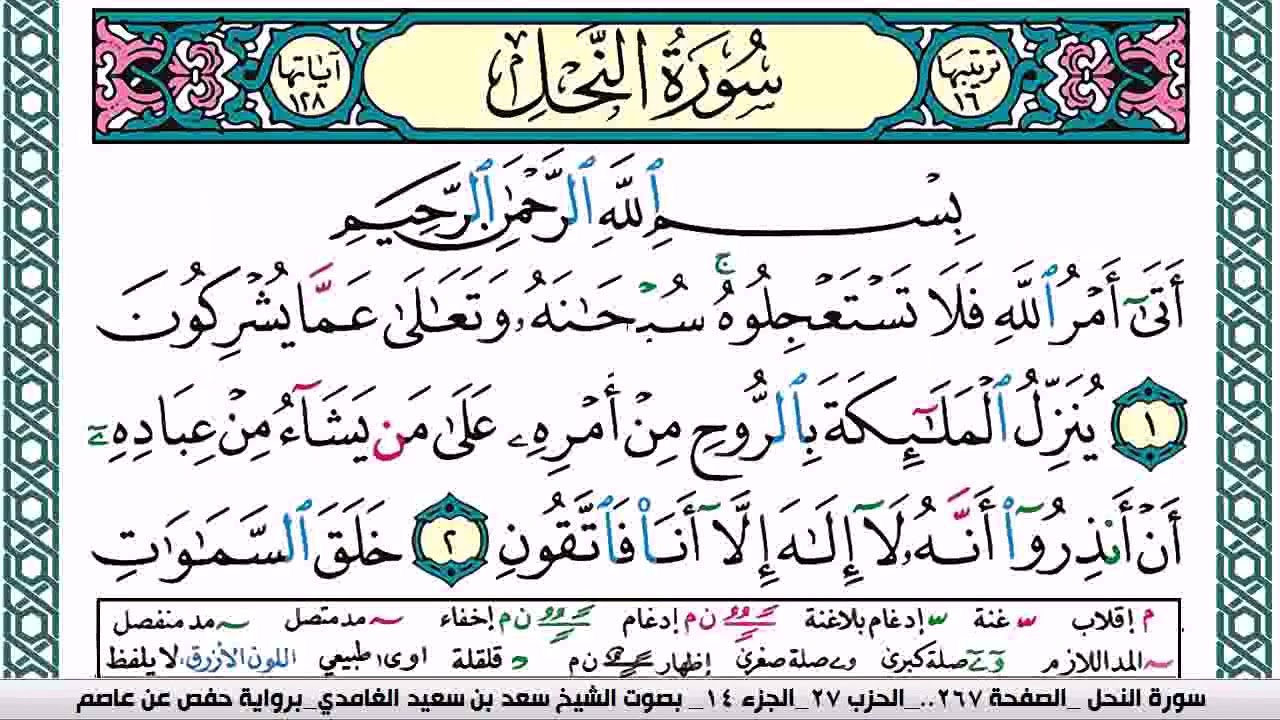 ترتيبها ١٦
سُورَةُ النَّحْلِ
آياتها ١٢٨
بِسْمِ ٱللَّهِ ٱلرَّحْمَٰنِ ٱلرَّحِيمِ
أَتَىٰٓ أَمْرُ ٱللَّهِ فَلَا تَسْتَعْجِلُوهُ ۚ سُبْحَٰنَهُۥ وَتَعَٰلَىٰ عَمَّا يُشْرِكُونَ
١ يُنَزِّلُ ٱلْمَلَٰٓئِكَةَ بِٱلرُّوحِ مِنْ أَمْرِهِۦ عَلَىٰ مَن يَشَآءُ مِنْ عِبَادِهِۦٓ
أَنْ أَنذِرُوٓا۟ أَنَّهُۥ لَآ إِلَٰهَ إِلَّآ أَنَا۠ فَٱتَّقُونِ ٢ خَلَقَ ٱلسَّمَٰوَٰتِ
م إقلاب غنة إدغام بلاغنة ن م إدغام ن م إخفاء مد متصل مد منفصل
المد اللازم صلة كبرى صلة صغرى ن م إظهار قلقلة اوى طبيعي اللون الأزرق. لا يلفظ
سورة النحل _الصفحة ٢٦٧.._الحزب ٢٧_الجزء ١٤_ بصوت الشيخ سعد بن سعيد الغامدي_برواية حفص عن عاصم